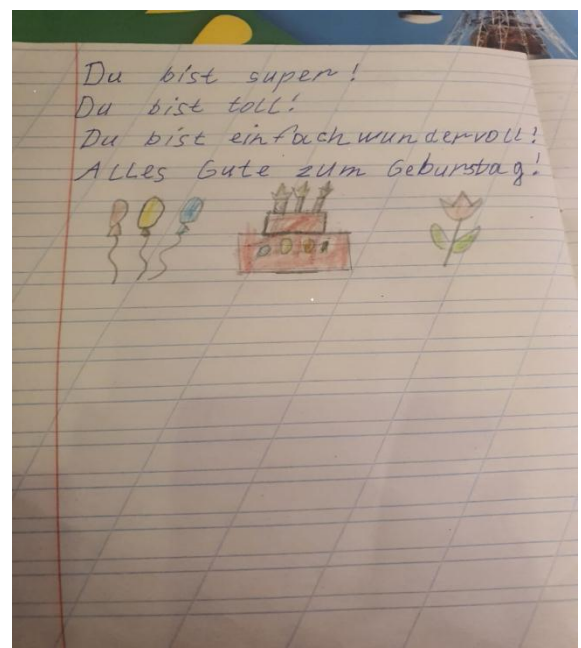 Du bist super!
Du bist toll!
Du bist einfach wundervoll!
Alles Gute zum Geburstag!